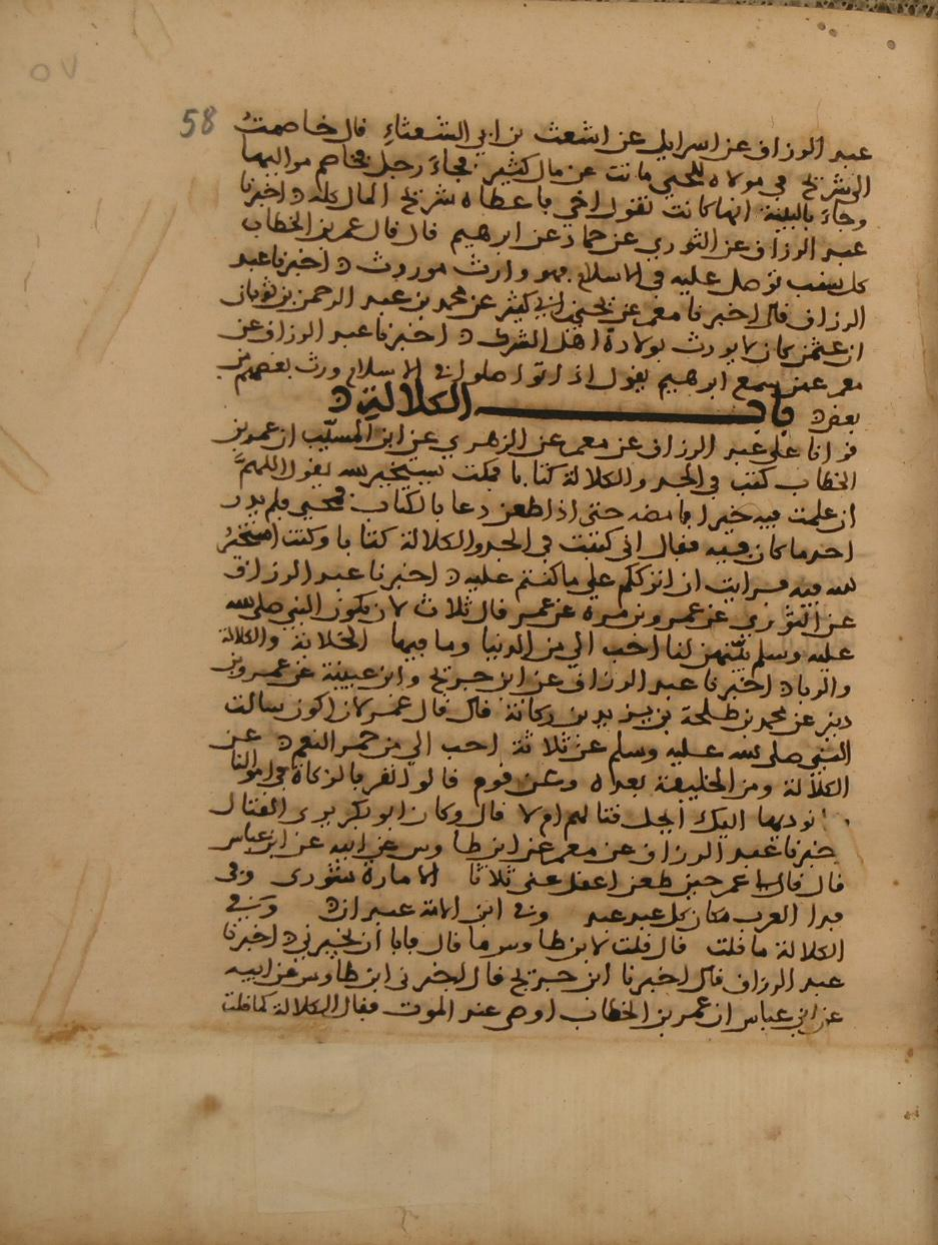 ٥٧
58
عبد الرزاق عن اسرايل عن اشعث بن ابي الشعثاء قال خاصمت
الى شريح في مولاه للحي ماتت عن مال كثير فجاء رجل فخاصم مواليها
وجاء بالبينة انها كانت تقول اخي فاعطاه شريح المال كله اخبرنا
عبد الرزاق عن الثوري عن حماد عن ابرهيم قال قال عمر بن الخطاب
كل نسب توصل عليه في الاسلام فهو وارث موروث اخبرنا عبد
الرزاق قال اخبرنا معمر عن يحيى بن ابي كثير عن محمد بن عبد الرحمن بن ثوبان
ان عثمن كان لا يورث بولادة اهل الشرك اخبرنا عبد الرزاق عن
معمر عمن سمع ابرهيم يقول اذا تواصلوا في الاسلام ورث بعضهم من
بعض باب الكلالة
قرانا على عبد الرزاق عن معمر عن الزهري عن ابن المسيب ان عمر بن
الخطاب كتب في الجد والكلالة كتابا فمكث يستخير الله يقول اللهم
ان علمت فيه خيرا فامضه حتى اذا طعن دعا بالكتاب فمحي فلم يدر
احد ما كان فيه فقال اني كتبت في الجد والكلالة كتابا وكنت استخير
الله فيه فرايت ان اترككم على ما كنتم عليه اخبرنا عبد الرزاق
عن الثوري عن عمرو بن مرة عن عمر قال ثلاث لان يكون النبي صلى الله
عليه وسلم بينهن لنا احب الي من الدنيا وما فيها الخلافة والكلالة
والربا اخبرنا عبد الرزاق عن ابن جريج وابن عيينة عن عمرو بن
دينر عن محمد بن طلحة بن يزيد بن ركانة قال قال عمر لان اكون سالت
النبي صلى الله عليه وسلم عن ثلاثة احب الي من حمر النعم عن
الكلالة ومن الخليفة بعده وعن قوم قالوا نقر بالزكاة في اموالنا
نوديها اليك ايحل قتالهم ام لا قال وكان ابو بكر يرى القتال
خبرنا عبد الرزاق عن معمر عن ابن طاوس عن ابيه عن ابن عباس
قال قال عمر حين طعن اعقل عني ثلاثا الامارة شورى وفي
فدا العرب مكان كل عبد عبد وفي ابن الامة عبدان وفي
الكلالة ما قلت قال قلت لابن طاوس ما قال فابا ان يخبرني اخبرنا
عبد الرزاق قال اخبرنا ابن جريج قال اخبرني ابن طاوس عن ابيه
عن ابن عباس ان عمر بن الخطاب اوصى عند الموت فقال الكلالة كما قلت